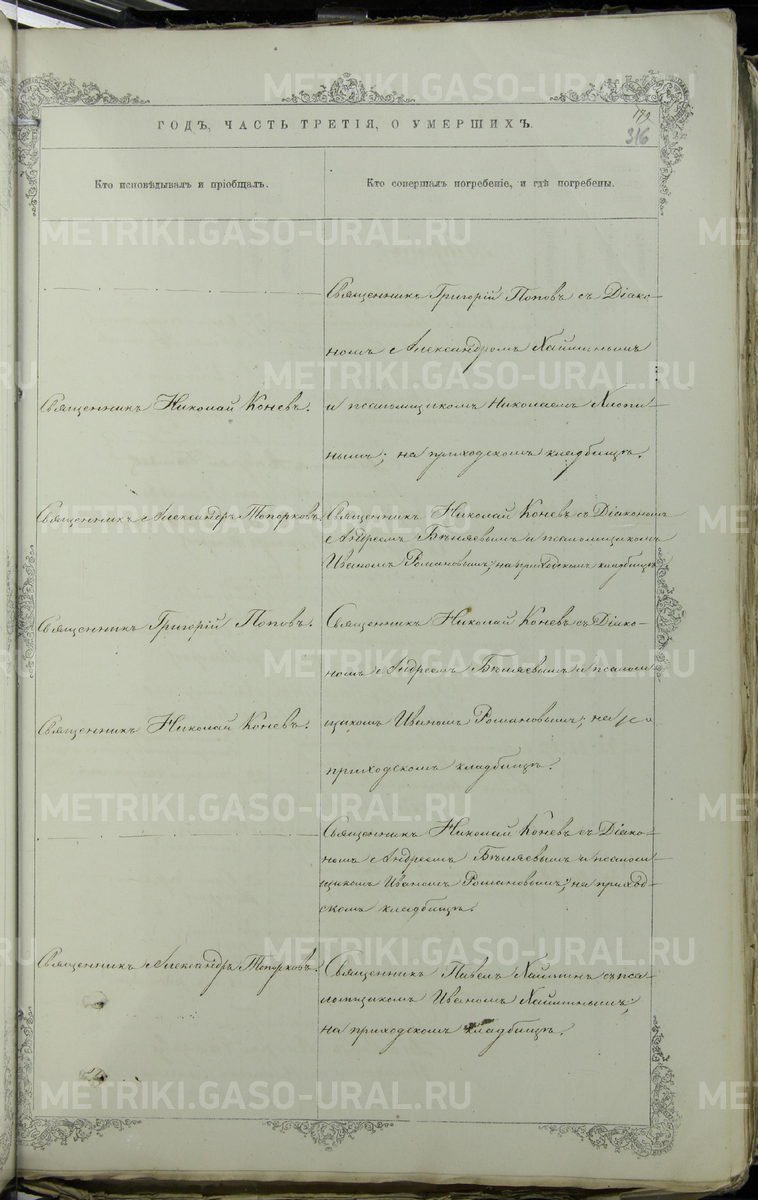 METRIKI.GASO-URAL.RU
179
316
ГОДЪ, ЧАСТЬ ТРЕТІЯ, О УМЕРШИХЪ.
Кто исповѣдывалъ и пріобщалъ.
Кто совершалъ погребеніе, и гдѣ погребены.
Священникъ Григорій Поповъ съ Діако-
номъ Александромъ Хайминымъ
Священникъ Николай Коневъ.
и псаломщикомъ Николаемъ Хлопи-
нымъ; на приходскомъ кладбищѣ.
Священникъ Александръ Топорковъ
Священникъ Николай Коневъ съ Діакономъ
Андреемъ Бѣляевымъ и псаломщикомъ
Иваномъ Романовымъ; на приходскомъ кладбищѣ
Священникъ Григорій Поповъ.
Священникъ Николай Коневъ съ Діако-
номъ Андреемъ Бѣляевымъ и псалом-
Священникъ Николай Коневъ.
щикомъ Иваномъ Романовымъ; на
приходскомъ кладбищѣ.
Священникъ Николай Коневъ съ Діако-
номъ Андреемъ Бѣляевымъ и псалом-
щикомъ Иваномъ Романовымъ; на приход-
скомъ кладбищѣ.
Священникъ Александръ Топорковъ.
Священникъ Павелъ Хайминъ съ пса-
ломщикомъ Иваномъ Хайминымъ;
на приходскомъ кладбищѣ.